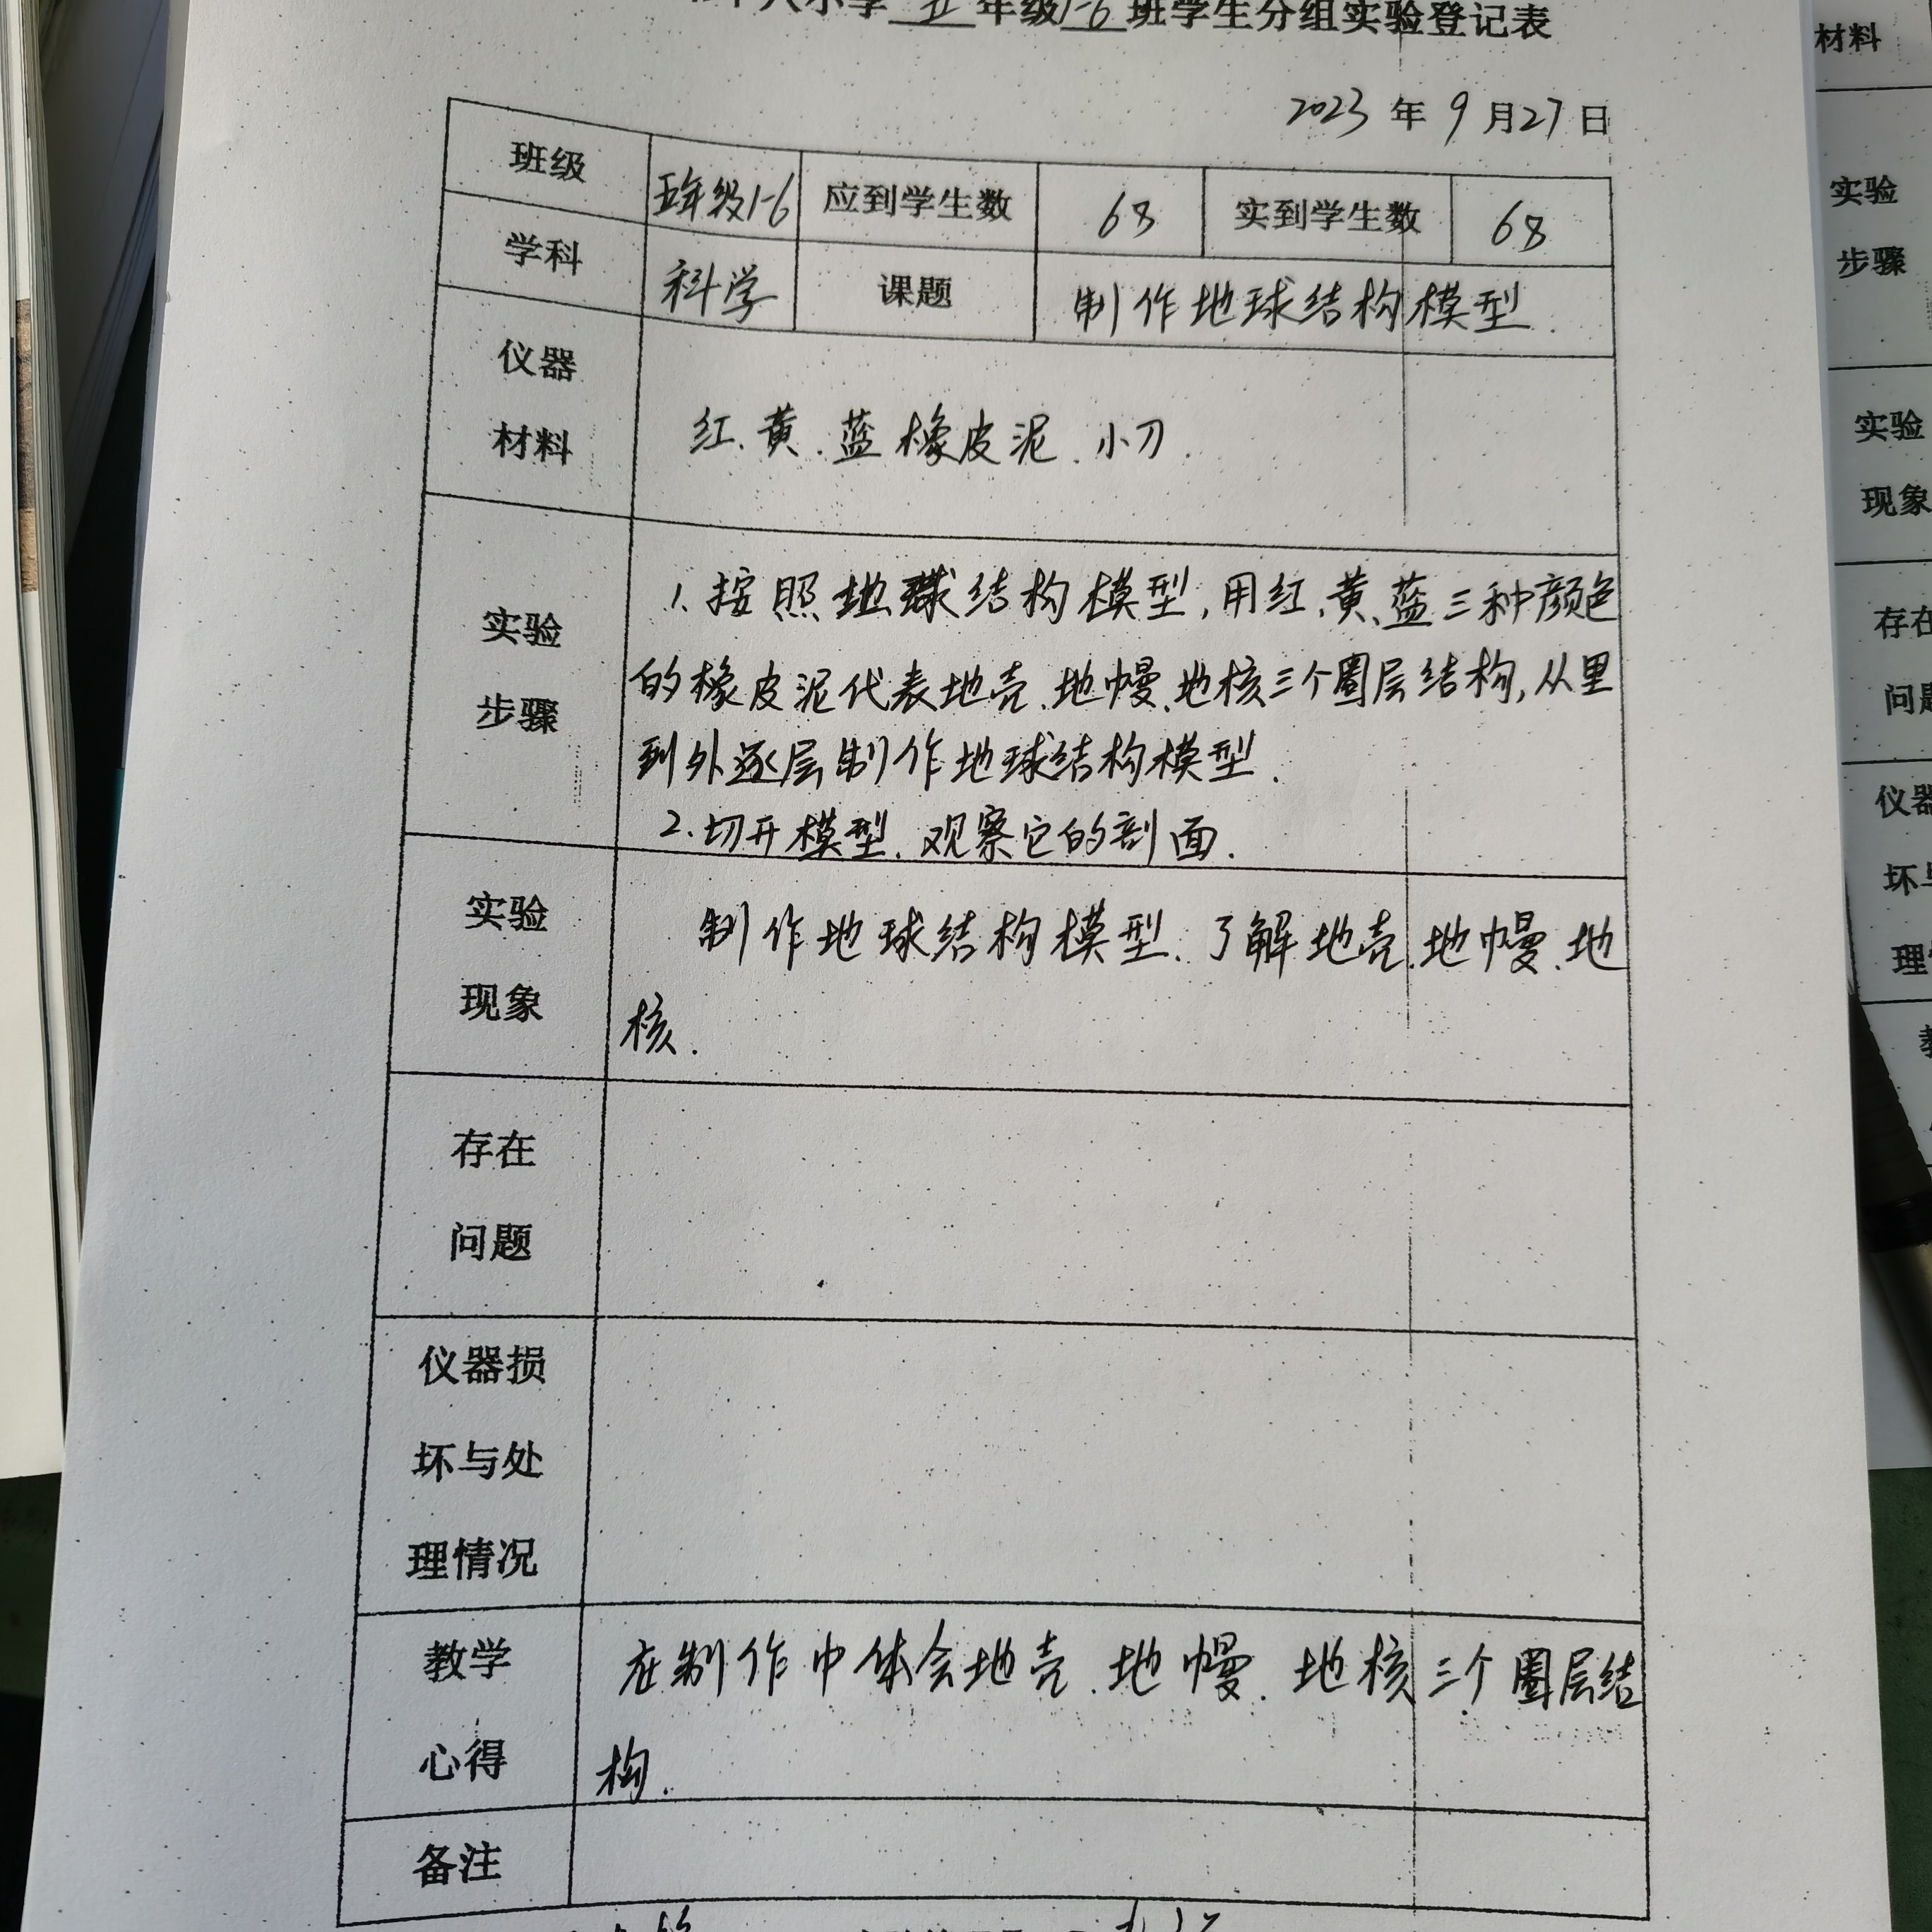 小学 五 年级 1-6 班学生分组实验登记表
2023 年 9 月 27 日
班级 五年级1-6 应到学生数 68 实到学生数 68
学科 科学 课题 制作地球结构模型.
仪器
材料
红、黄、蓝橡皮泥、小刀.
实验
步骤
1. 按照地球结构模型,用红、黄、蓝三种颜色
的橡皮泥代表地壳、地幔、地核三个圈层结构,从里
到外逐层制作地球结构模型.
2. 切开模型、观察它的剖面.
实验
现象
制作地球结构模型、了解地壳、地幔、地
核.
存在
问题
仪器损
坏与处
理情况
教学
心得
在制作中体会地壳、地幔、地核三个圈层结
构.
备注
材料
实验
步骤
实验
现象
存在
问题
仪器